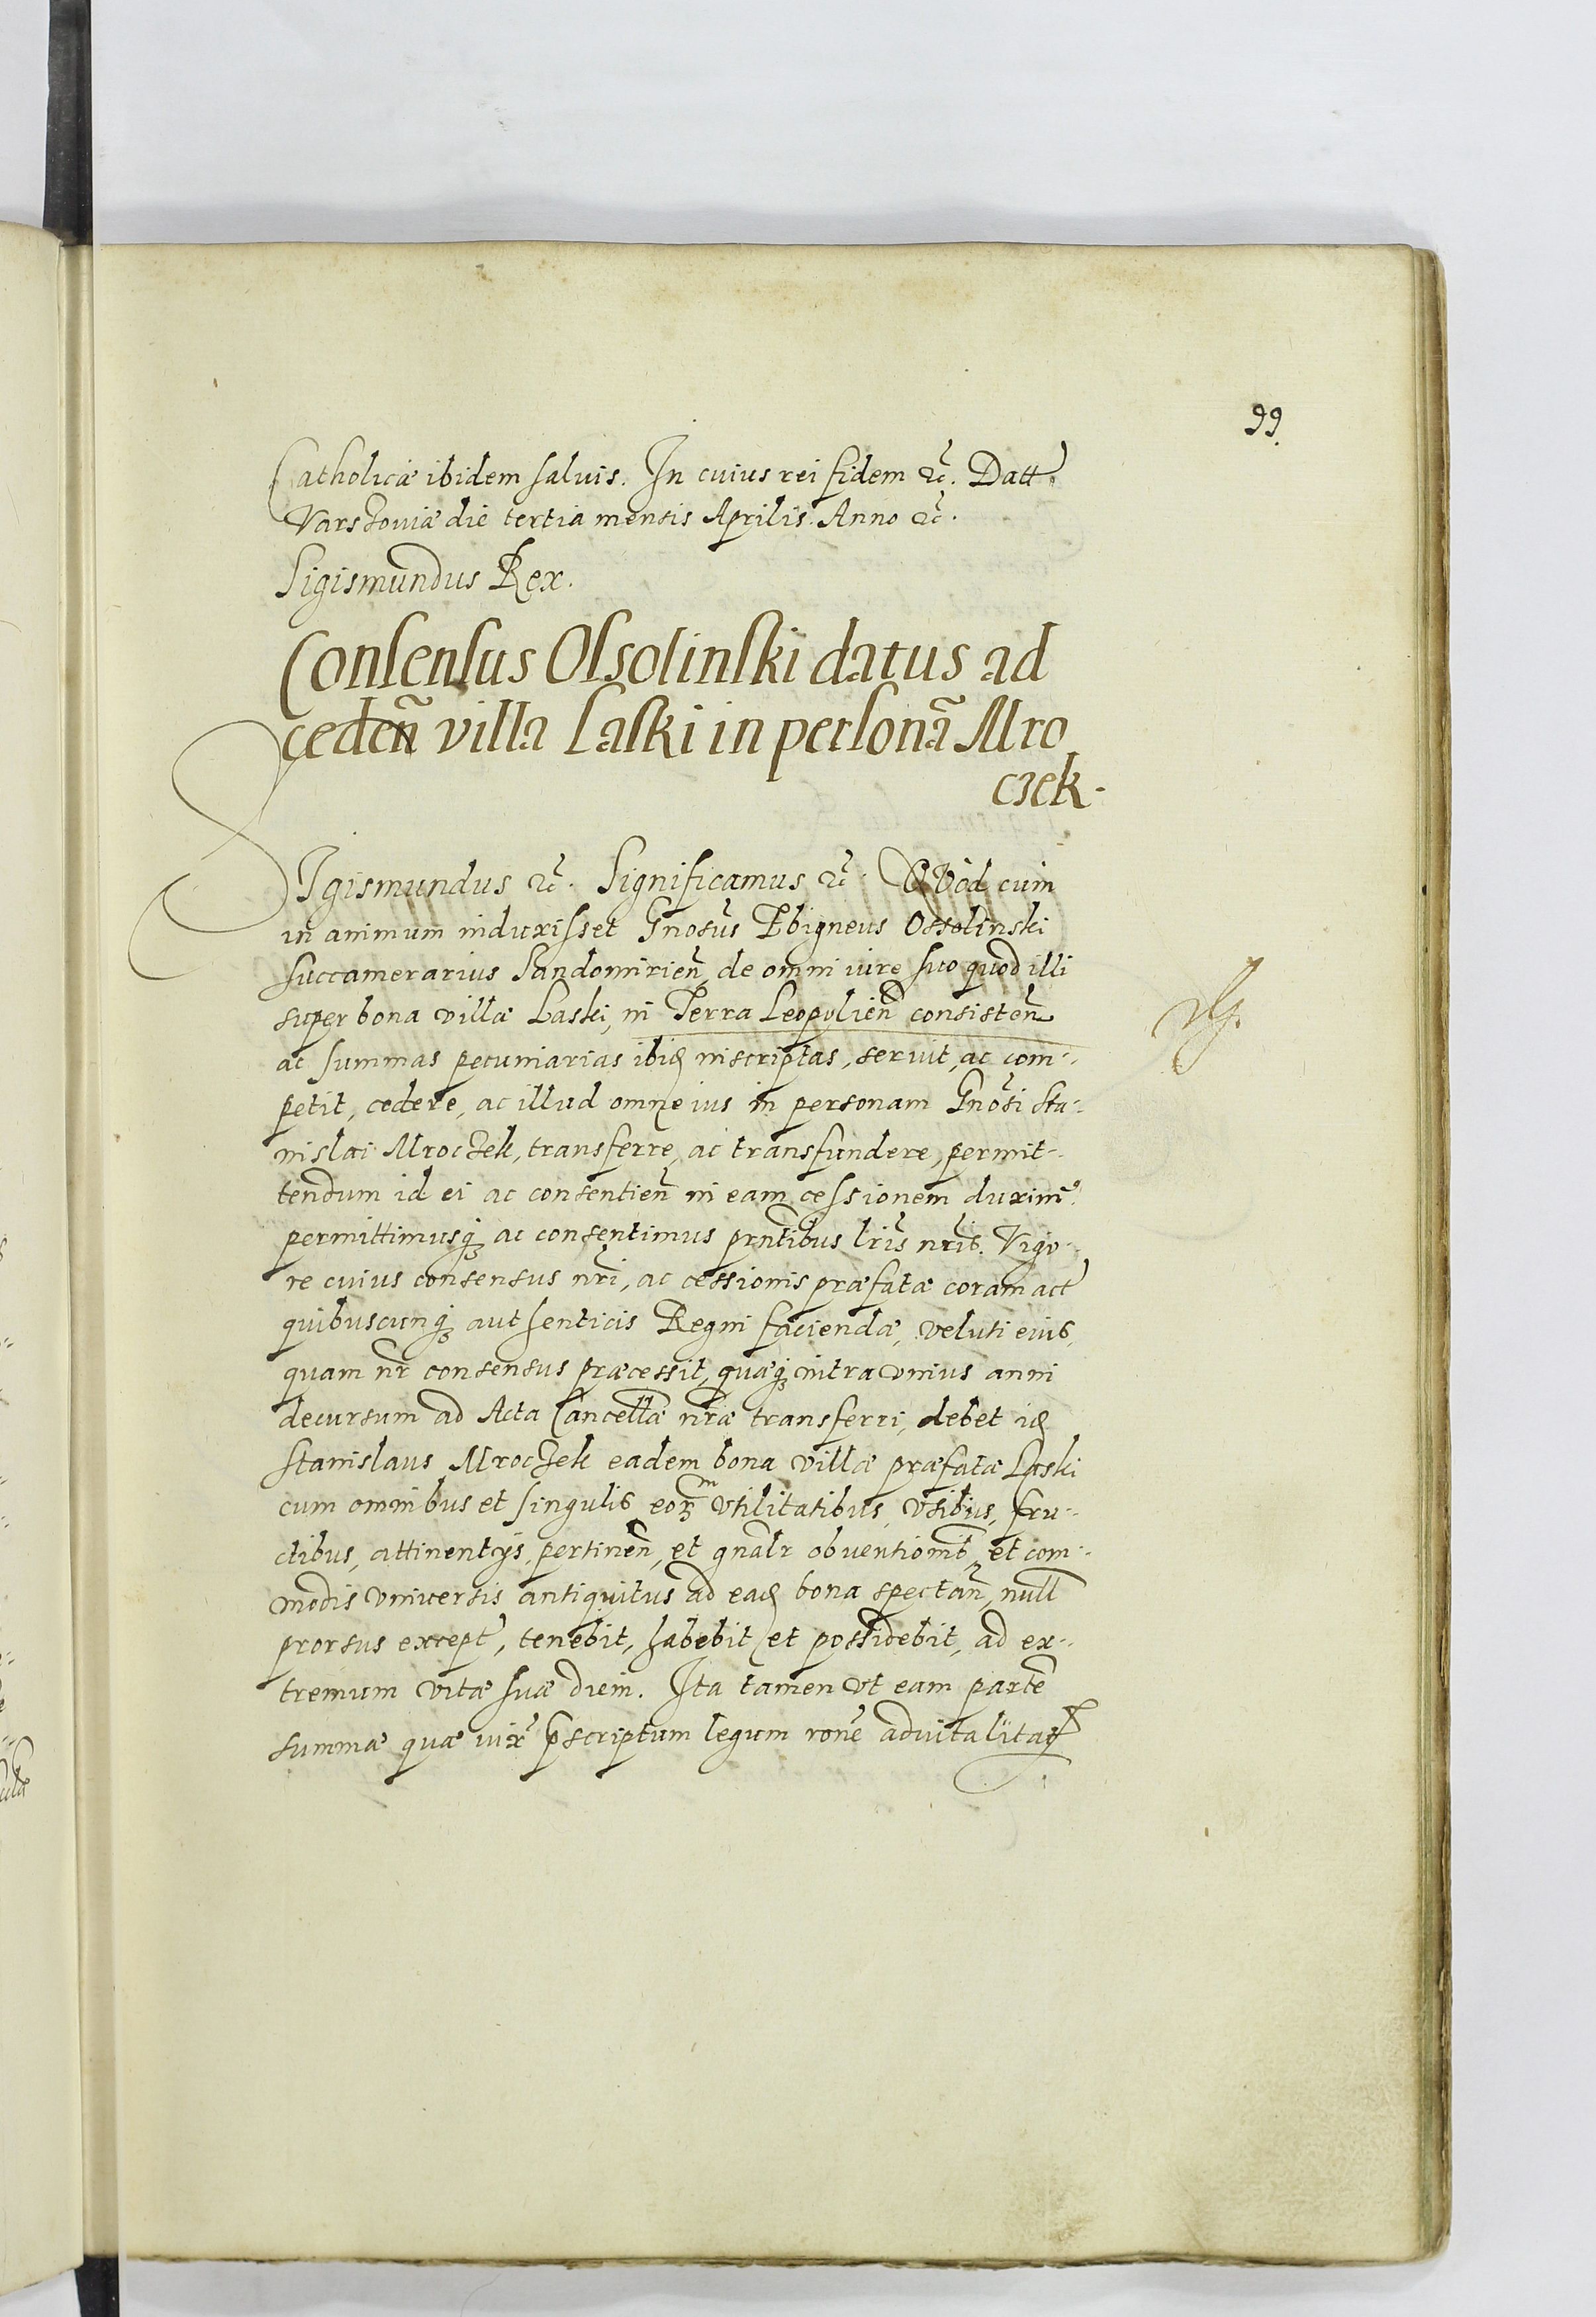 99.
Catholicæ ibidem salvis. In cuius rei fidem &c̃. Datt.
Varszoviæ die tertia mensis Aprilis. Anno &c̃.
Sigismundus Rex.
Consensus Ossolinski datus ad
cedeñ villa Laski in personã Mro
czek.
SIgismundus &c̃. Significamus &c̃. QVod cum
in animum induxisset Gnosũs Zbigneus Ossolinski
succamerarius Sandomirieñ, de omni iure suo quod illi
super bona villæ Laski, in Terra Leopolieñ consisteñ
ac summas pecuniarias ibiđ inscriptas, servit, ac com-
petit, cedere, ac illud omne ius in personam Gnosĩ Sta-
nislai Mroczek, transferre, ac transfundere, permit-
tendum id ei ac consentieñ in eam cessionem duximꝰ
permittimusqꝫ ac consentimus prñtibus lrĩs nrĩs. Vigo-
re cuius consensus nrĩ, ac cessionis præfatæ coram act
quibuscunqꝫ authenticis Regni faciendæ, veluti eius,
quam nr̃ consensus præcessit, quæqꝫ intra unius anni
decursum ad Acta Cancellæ nræ̃ transferri, debet iđ
Stanislaus Mroczek eadem bona villæ præfatæ Laski
cum omnibus et singulis eoꝝm utilitatibus, usibus, fru-
ctibus, attinentijs, pertineñ, et gnãlr obventionib̃, et com-
modis universis antiquitus ad eađ bona spectañ, null
prorsus except, tenebit, habebit et possidebit, ad ex-
tremum vitæ suæ diem. Ita tamen ut eam partẽ
summæ quæ iuxt̃ p̃scriptum legum ronẽ advitalitat